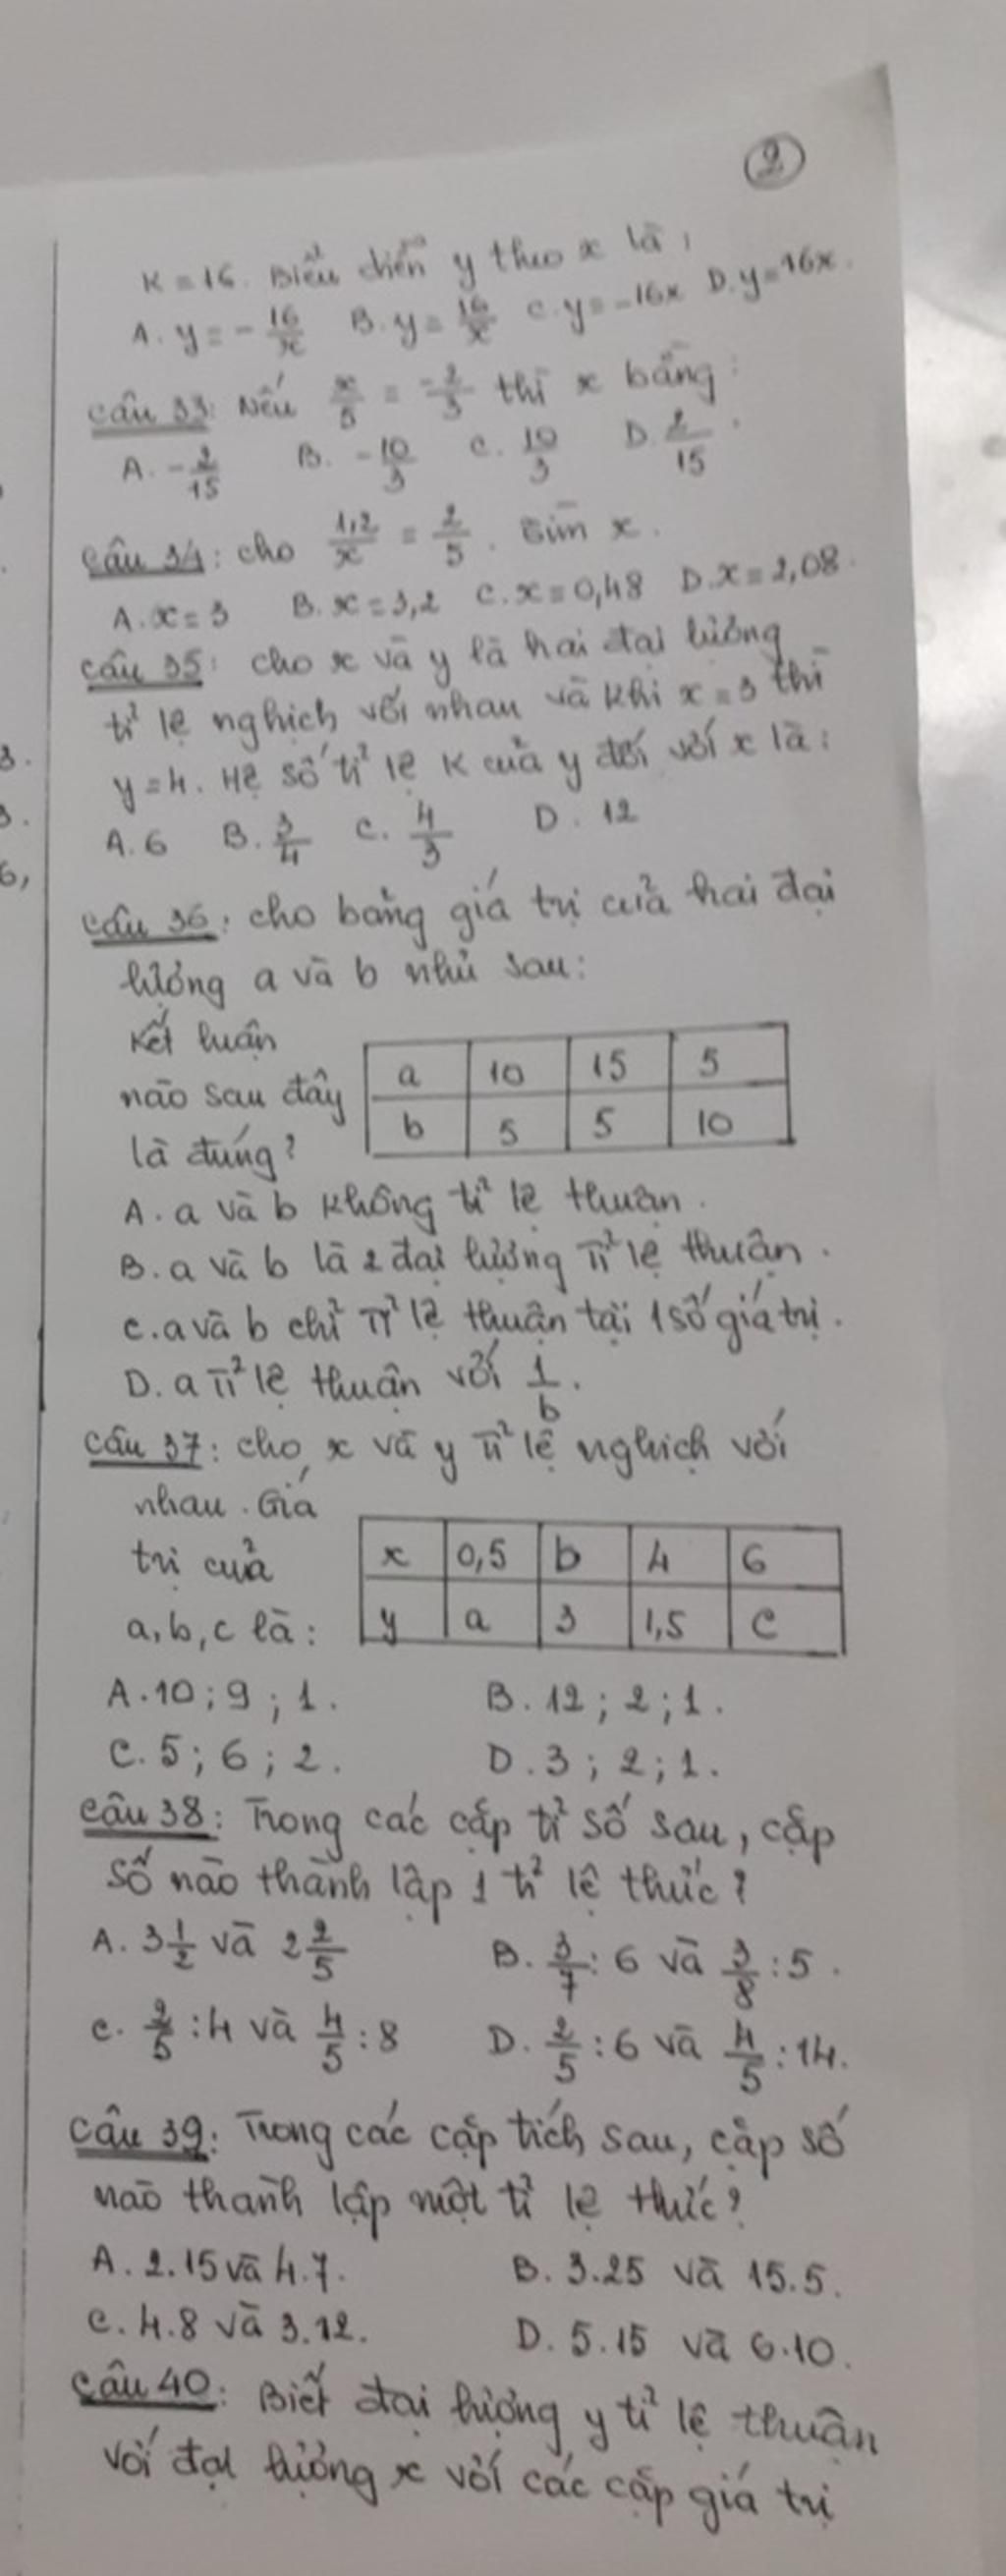 2
K = 16. Biểu diễn y theo x là:
A. y = -16/x B. y = 16/x C. y = -16x D. y = 16x.
Câu 33: Nếu x/5 = -2/3 thì x bằng:
A. -2/15 B. -10/3 C. 10/3 D. 2/15.
Câu 34: cho 1,2/x = 2/5. Tìm x.
A. x = 3 B. x = 3,2 C. x = 0,48 D. x = 2,08.
Câu 35: cho x và y là hai đại lượng
tỉ lệ nghịch với nhau và khi x = 3 thì
y = 4. Hệ số tỉ lệ K của y đối với x là:
A. 6 B. 3/4 C. 4/3 D. 12
3.
3.
6,
Câu 36: cho bảng giá trị của hai đại
lượng a và b như sau:
Kết luận
nào sau đây
là đúng?
a 10 15 5
b 5 5 10
A. a và b không tỉ lệ thuận.
B. a và b là 2 đại lượng tỉ lệ thuận.
C. a và b chỉ tỉ lệ thuận tại 1 số giá trị.
D. a tỉ lệ thuận với 1/b.
Câu 37: cho x và y tỉ lệ nghịch với
nhau. Giá
trị của
a, b, c là:
x 0,5 b 4 6
y a 3 1,5 c
A. 10; 9; 1. B. 12; 2; 1.
C. 5; 6; 2. D. 3; 2; 1.
Câu 38: Trong các cặp tỉ số sau, cặp
số nào thành lập 1 tỉ lệ thức?
A. 3 1/2 và 2 2/5 B. 3/7 : 6 và 3/8 : 5.
C. 2/5 : 4 và 4/5 : 8 D. 2/5 : 6 và 4/5 : 14.
Câu 39: Trong các cặp tích sau, cặp số
nào thành lập một tỉ lệ thức?
A. 2.15 và 4.7. B. 3.25 và 15.5.
C. 4.8 và 3.12. D. 5.15 và 6.10.
Câu 40: Biết đại lượng y tỉ lệ thuận
với đại lượng x với các cặp giá trị